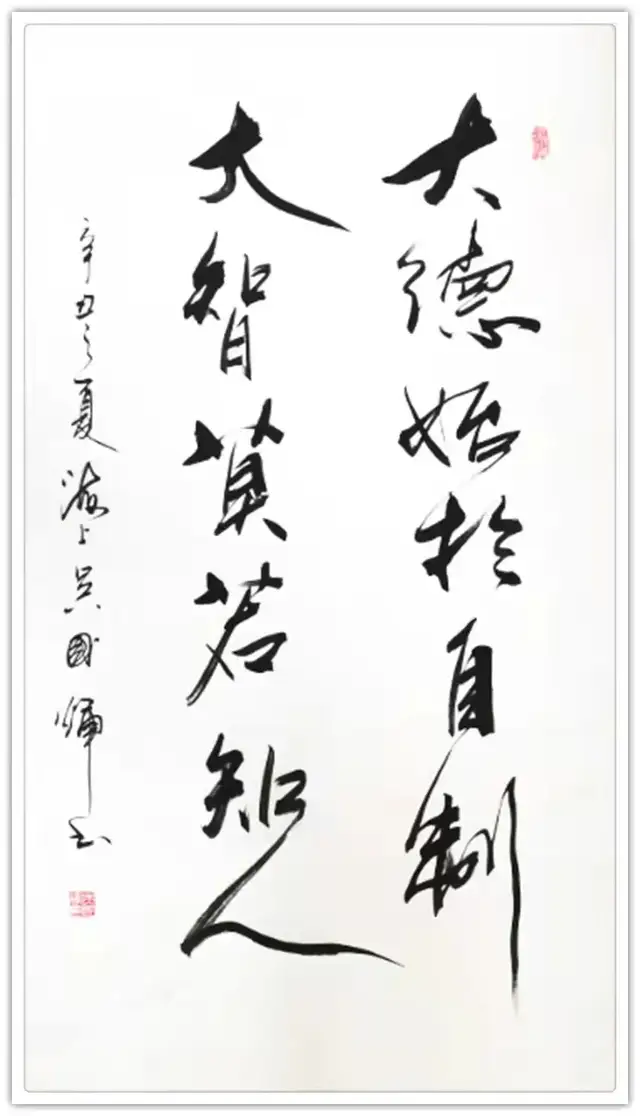 大德始於自制
大智莫若知人
辛丑之夏海上吴國书